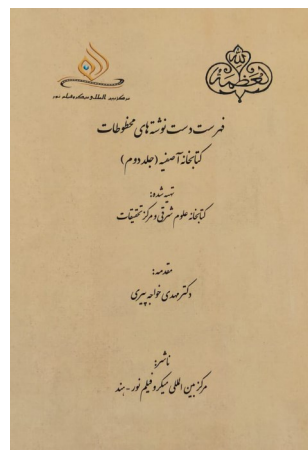 العظمة لله
مرکز بین المللی میکروفیلم نور
فهرست دست نوشته های مخطوطات
کتابخانه آصفیه (جلد دوم)
تهیه شده:
کتابخانه علوم شرقی و مرکز تحقیقات
مقدمه:
دکتر مهدی خواجه پیری
ناشر:
مرکز بین المللی میکروفیلم نور - هند